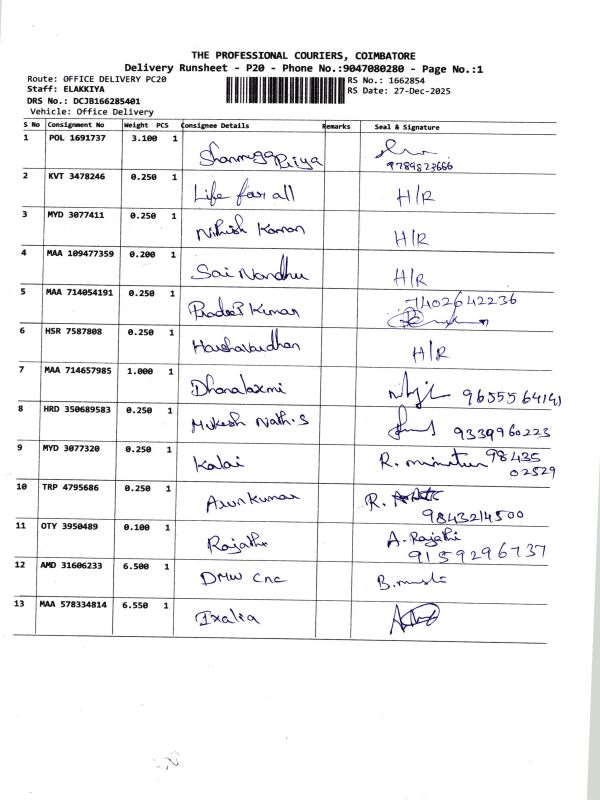 THE PROFESSIONAL COURIERS, COIMBATORE
Delivery Runsheet - P20 - Phone No.:9047080280 - Page No.:1
Route: OFFICE DELIVERY PC20
RS No.: 1662854
Staff: ELAKKIYA
RS Date: 27-Dec-2025
DRS No.: DCJB166285401
Vehicle: Office Delivery
S No Consignment No Weight PCS Consignee Details Remarks Seal & Signature
1 POL 1691737 3.100 1
Shanmuga Priya
9789823666
2 KVT 3478246 0.250 1
Life for all H/R
3 MYD 3077411 0.250 1
Nithish Kannan H/R
4 MAA 109477359 0.200 1
Sai Nandhu H/R
5 MAA 714054191 0.250 1
7402642236
Pradeep Kumar
6 HSR 7587808 0.250 1
Harshavardhan H/R
7 MAA 714657985 1.000 1
Dhanalaxmi 9655564141
8 HRD 350689583 0.250 1
Mukesh Nath.S 9339960223
9 MYD 3077320 0.250 1
Kalai R. 98435
02529
10 TRP 4795686 0.250 1
Arun Kumar R.
9843214500
11 OTY 3950489 0.100 1
Rajathi A. Rajathi
9159296737
12 AMD 31606233 6.500 1
DMW cnc B.
13 MAA 578334814 6.550 1
Ixalia